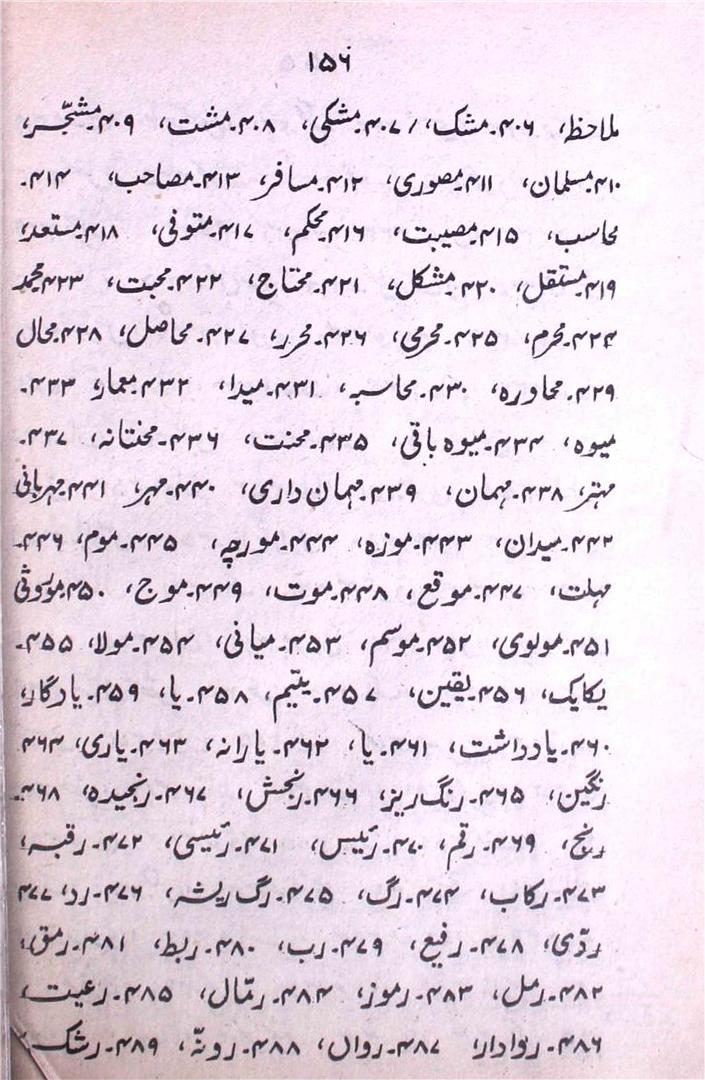 ۱۵۶
ملاحظ، ۴۰۶۔مشک، /۴۰۷۔مشکی، ۴۰۸۔مشت، ۴۰۹۔مشجّر،
۴۱۰۔مسلمان، ۴۱۱۔مصوری، ۴۱۲۔مسافر، ۴۱۳۔مصاحب، ۴۱۴۔
محاسب، ۴۱۵۔مصیبت، ۴۱۶۔محکم، ۴۱۷۔متوفی، ۴۱۸۔مستعد،
۴۱۹۔مستقل، ۴۲۰۔مشکل، ۴۲۱۔محتاج، ۴۲۲۔محبت، ۴۲۳۔محمد
۴۲۴۔محرم، ۴۲۵۔محرمی، ۴۲۶۔محرر، ۴۲۷۔محاصل، ۴۲۸۔محال
۴۲۹۔محاورہ، ۴۳۰۔محاسبہ، ۴۳۱۔میدا، ۴۳۲۔معمار، ۴۳۳۔
میوہ، ۴۳۴۔میوہ باقی، ۴۳۵۔محنت، ۴۳۶۔محنتانہ، ۴۳۷۔
مہتر، ۴۳۸۔مہمان، ۴۳۹۔مہمان داری، ۴۴۰۔مہر، ۴۴۱۔مہربانی
۴۴۲۔میدان، ۴۴۳۔موزہ، ۴۴۴۔مورچہ، ۴۴۵۔موم، ۴۴۶۔
مہلت، ۴۴۷۔موقع، ۴۴۸۔موت، ۴۴۹۔موج، ۴۵۰۔موروثی
۴۵۱۔مولوی، ۴۵۲۔موسم، ۴۵۳۔میانی، ۴۵۴۔مولا، ۴۵۵۔
یکایک، ۴۵۶۔یقین، ۴۵۷۔یتیم، ۴۵۸۔یا، ۴۵۹۔یادگار،
۴۶۰۔یادداشت، ۴۶۱۔یا، ۴۶۲۔یارانہ، ۴۶۳۔یاری، ۴۶۴
رنگین، ۴۶۵۔رنگ ریز، ۴۶۶۔رنجش، ۴۶۷۔رنجیدہ، ۴۶۸۔
رنج، ۴۶۹۔رقم، ۴۷۰۔رئیس، ۴۷۱۔رئیسی، ۴۷۲۔رقبہ،
۴۷۳۔رکاب، ۴۷۴۔رگ، ۴۷۵۔رگ ریشہ، ۴۷۶۔رد، ۴۷۷
ردّی، ۴۷۸۔رفیع، ۴۷۹۔رب، ۴۸۰۔ربط، ۴۸۱۔رمق،
۴۸۲۔رمل، ۴۸۳۔رموز، ۴۸۴۔رمّال، ۴۸۵۔رعیت،
۴۸۶۔روادار، ۴۸۷۔رواں، ۴۸۸۔رونّہ، ۴۸۹۔رشک